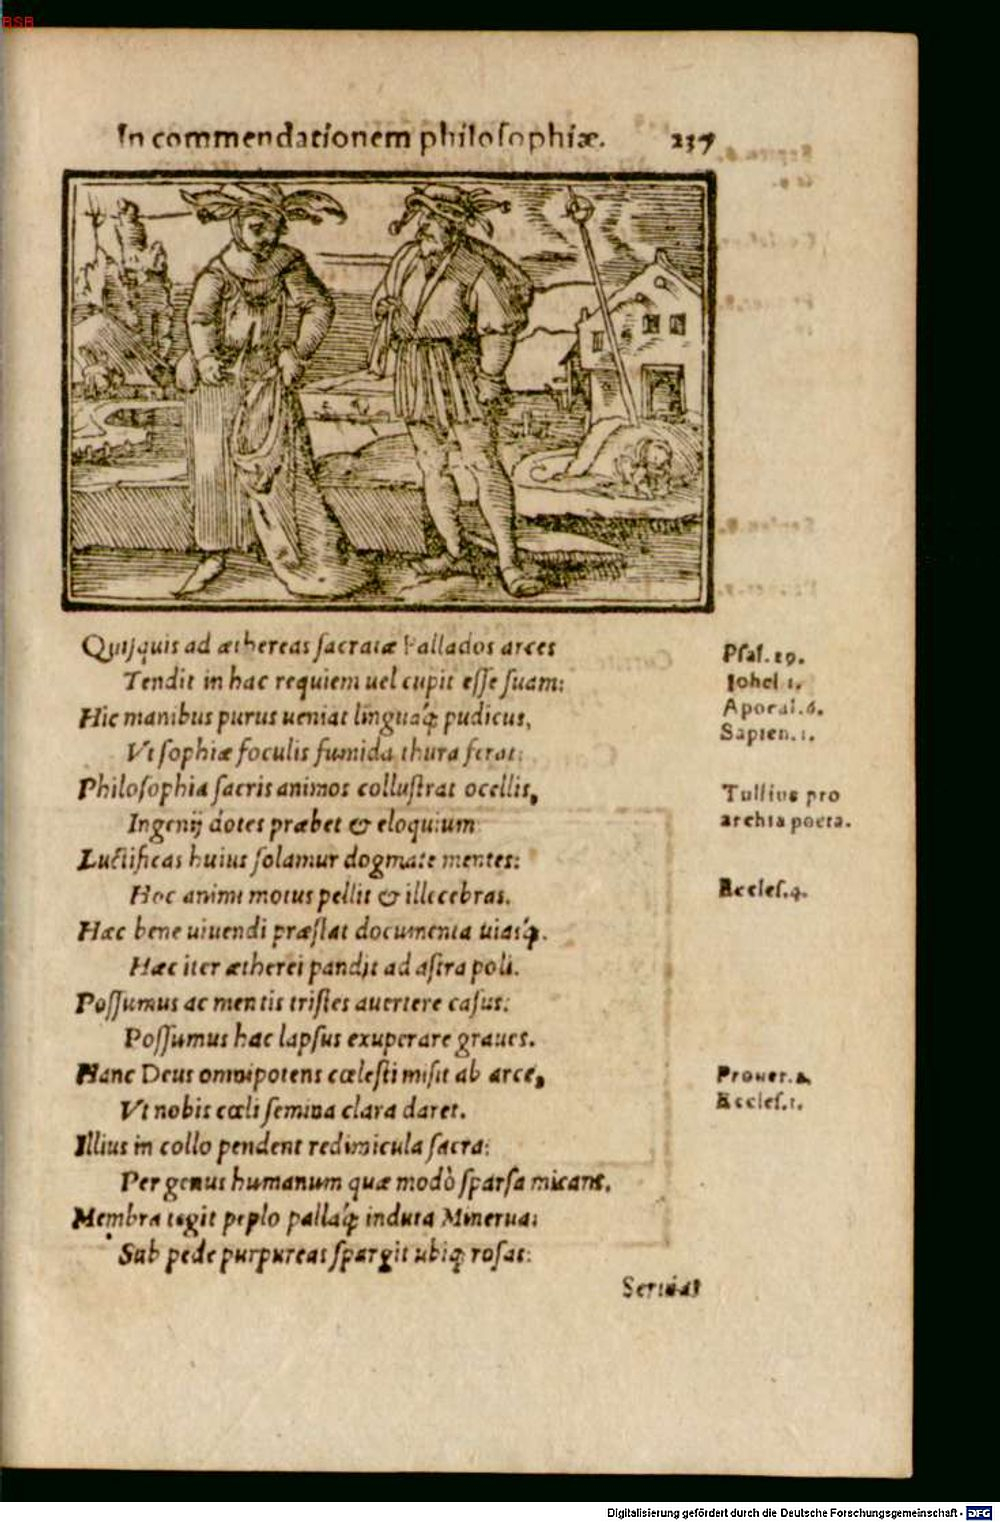 BSB
In commendationem philosophiæ. 237
Quisquis ad æthereas sacratæ Pallados arces
Tendit in hac requiem uel cupit esse suam:
Hic manibus purus ueniat linguáq; pudicus,
Vt sophiæ foculis fumida thura ferat:
Philosophia sacris animos collustrat ocellis,
Ingenij dotes præbet & eloquium
Luctificas huius solamur dogmate mentes:
Hoc animi motus pellit & illecebras.
Hæc bene uiuendi præstat documenta uiasq́;.
Hæc iter ætherei pandit ad astra poli.
Possumus ac mentis tristes auertere casus:
Possumus hac lapsus exuperare graues.
Hanc Deus omnipotens cœlesti misit ab arce,
Vt nobis cœli semina clara daret.
Illius in collo pendent redimicula sacra:
Per genus humanum quæ modò sparsa micant.
Membra tegit peplo pallaq́; induta Minerua:
Sub pede purpureas spargit ubiq; rosas:
Psal. 19.
Johel 1.
Apocal. 6.
Sapien. 1.
Tullius pro
archia poeta.
Eccles. 9.
Prouer. 2.
Eccles. 1.
Digitalisierung gefördert durch die Deutsche Forschungsgemeinschaft - DFG